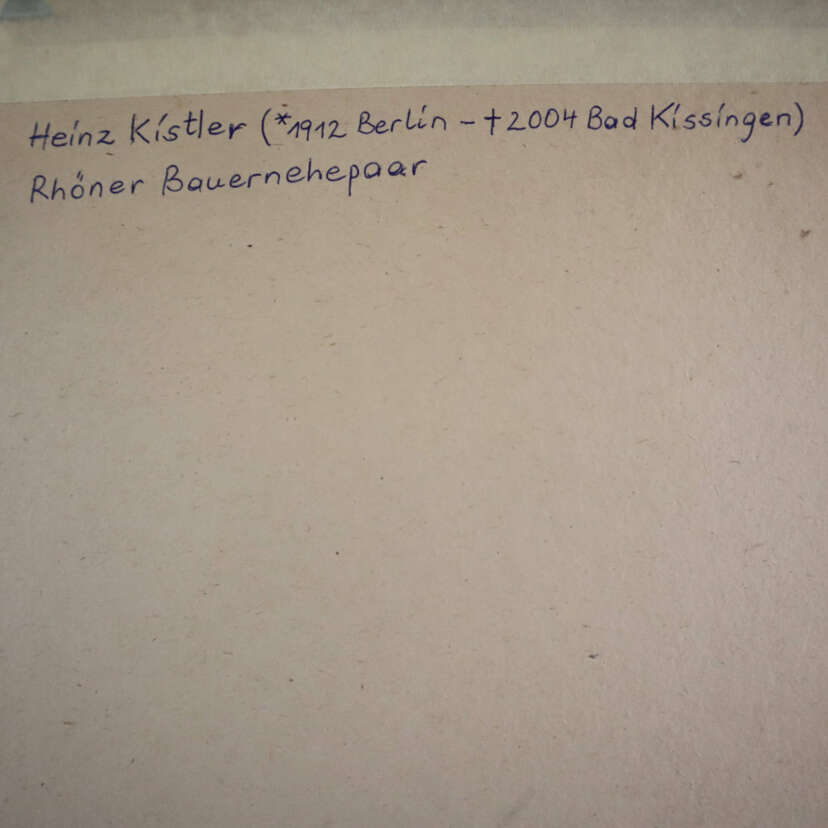 Heinz Kistler (*1912 Berlin - †2004 Bad Kissingen)
Rhöner Bauernehepaar